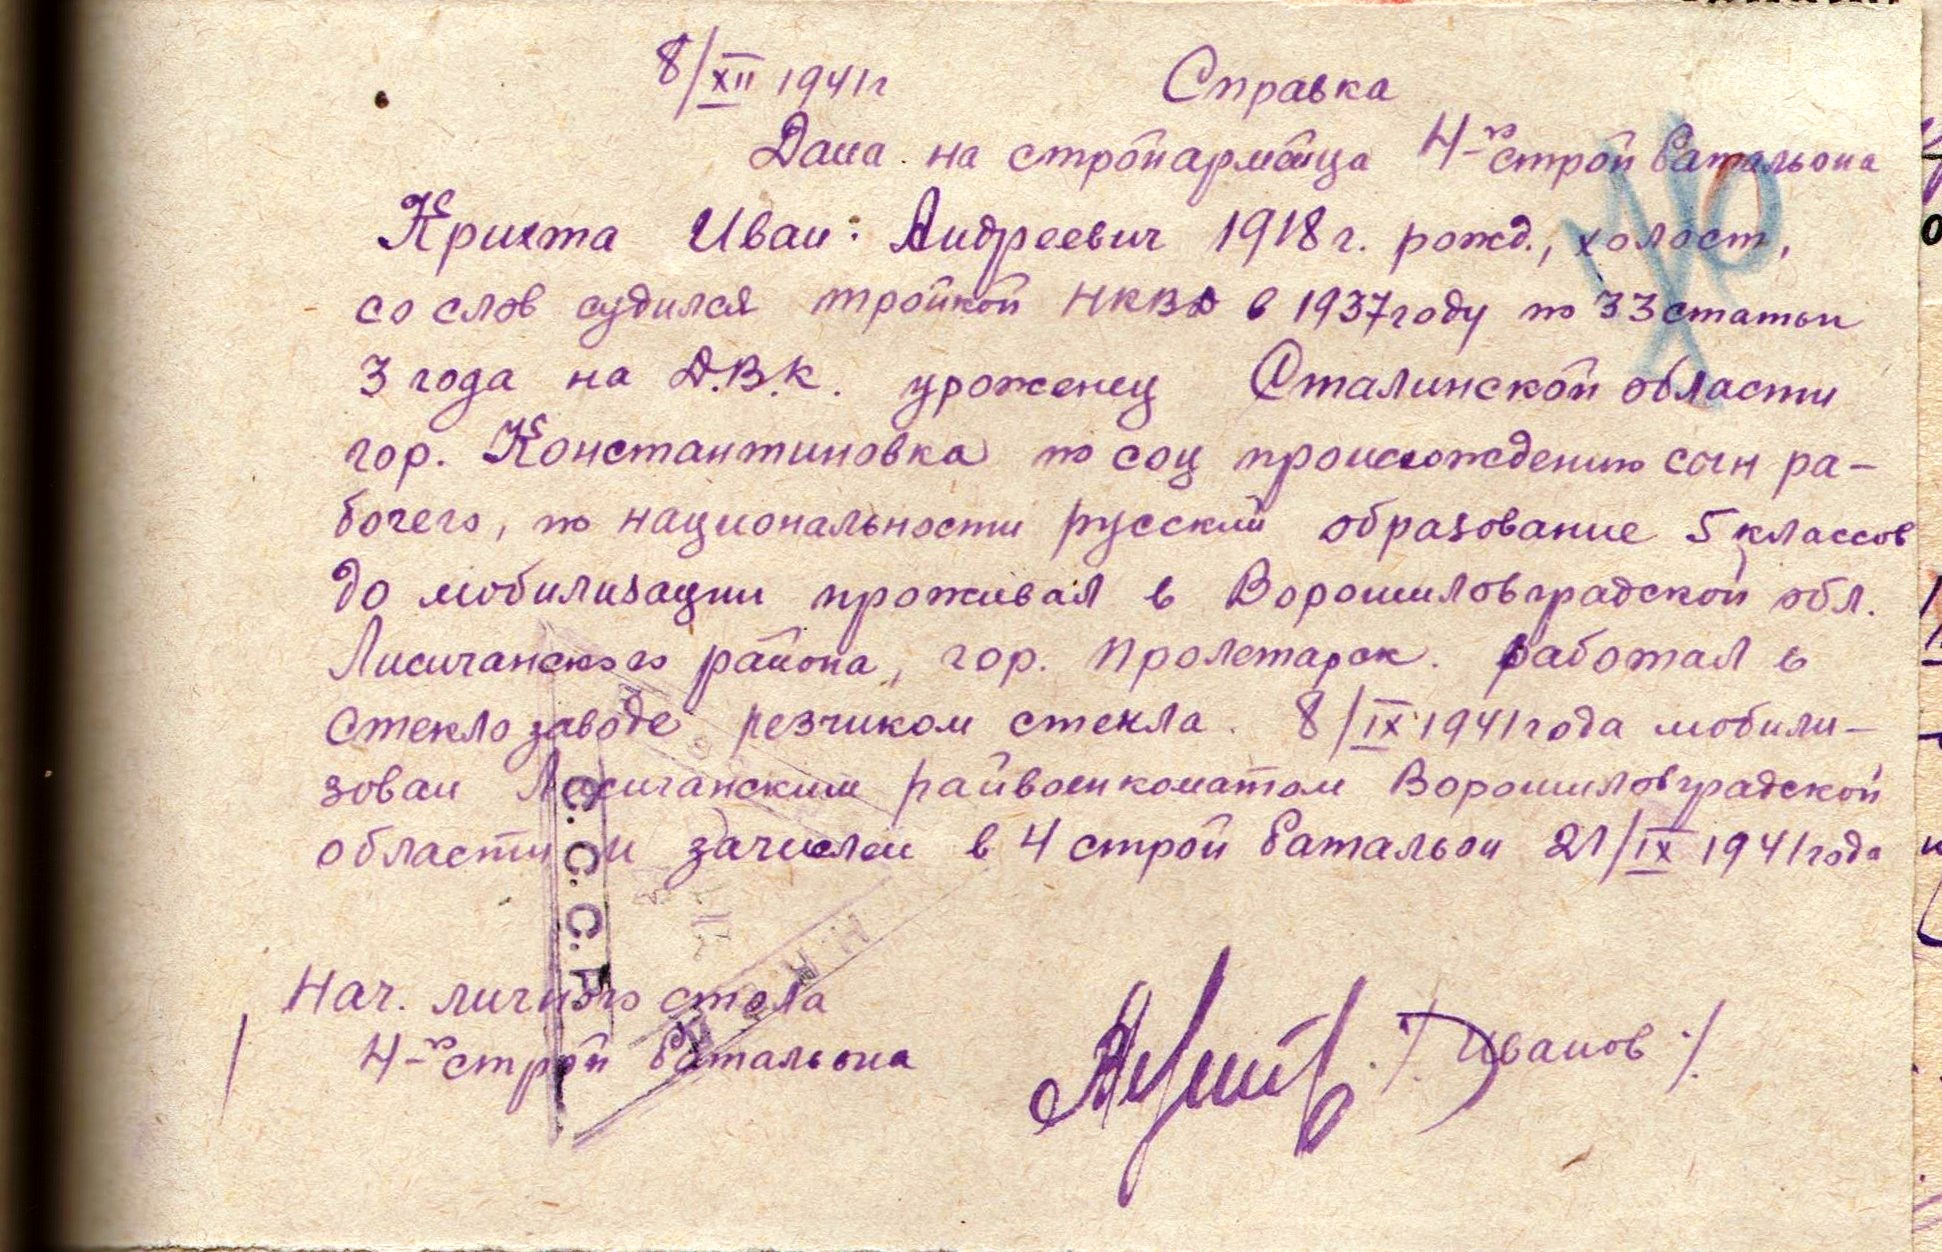 8/XII 1941 г Справка
Дана на стройармейца 4-го строй батальона
Крихта Иван Андреевич 1918 г. рожд., холост,
со слов судился тройкой НКВД в 1937 году по 33 статьи
3 года на Д.В.К. уроженец Сталинской области
гор. Константиновка по соц происхождению сын ра-
бочего, по национальности русский образование 5 классов
до мобилизации проживал в Ворошиловградской обл.
Лисичанского района, гор. Пролетарск. работал в
стекло заводе резчиком стекла. 8/IX 1941 года мобили-
зован Лисичанским райвоенкоматом Ворошиловградской
области и зачислен в 4 строй батальон 21/IX 1941 года
С.С.С.Р.
Нач. личного стола
4-го строй батальона
/Иванов/